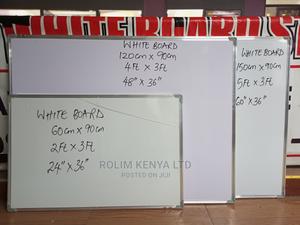 WHITE BOARD S
WHITE BOARD
120cm x 90cm
4Ft x 3Ft
48" x 36"
WHITE BOARD
150cm x 90cm
5Ft x 3Ft
60" x 36"
WHITE BOARD
60cm x 90cm
2Ft x 3Ft
24" x 36"
ROLIM KENYA LTD
POSTED ON JIJI